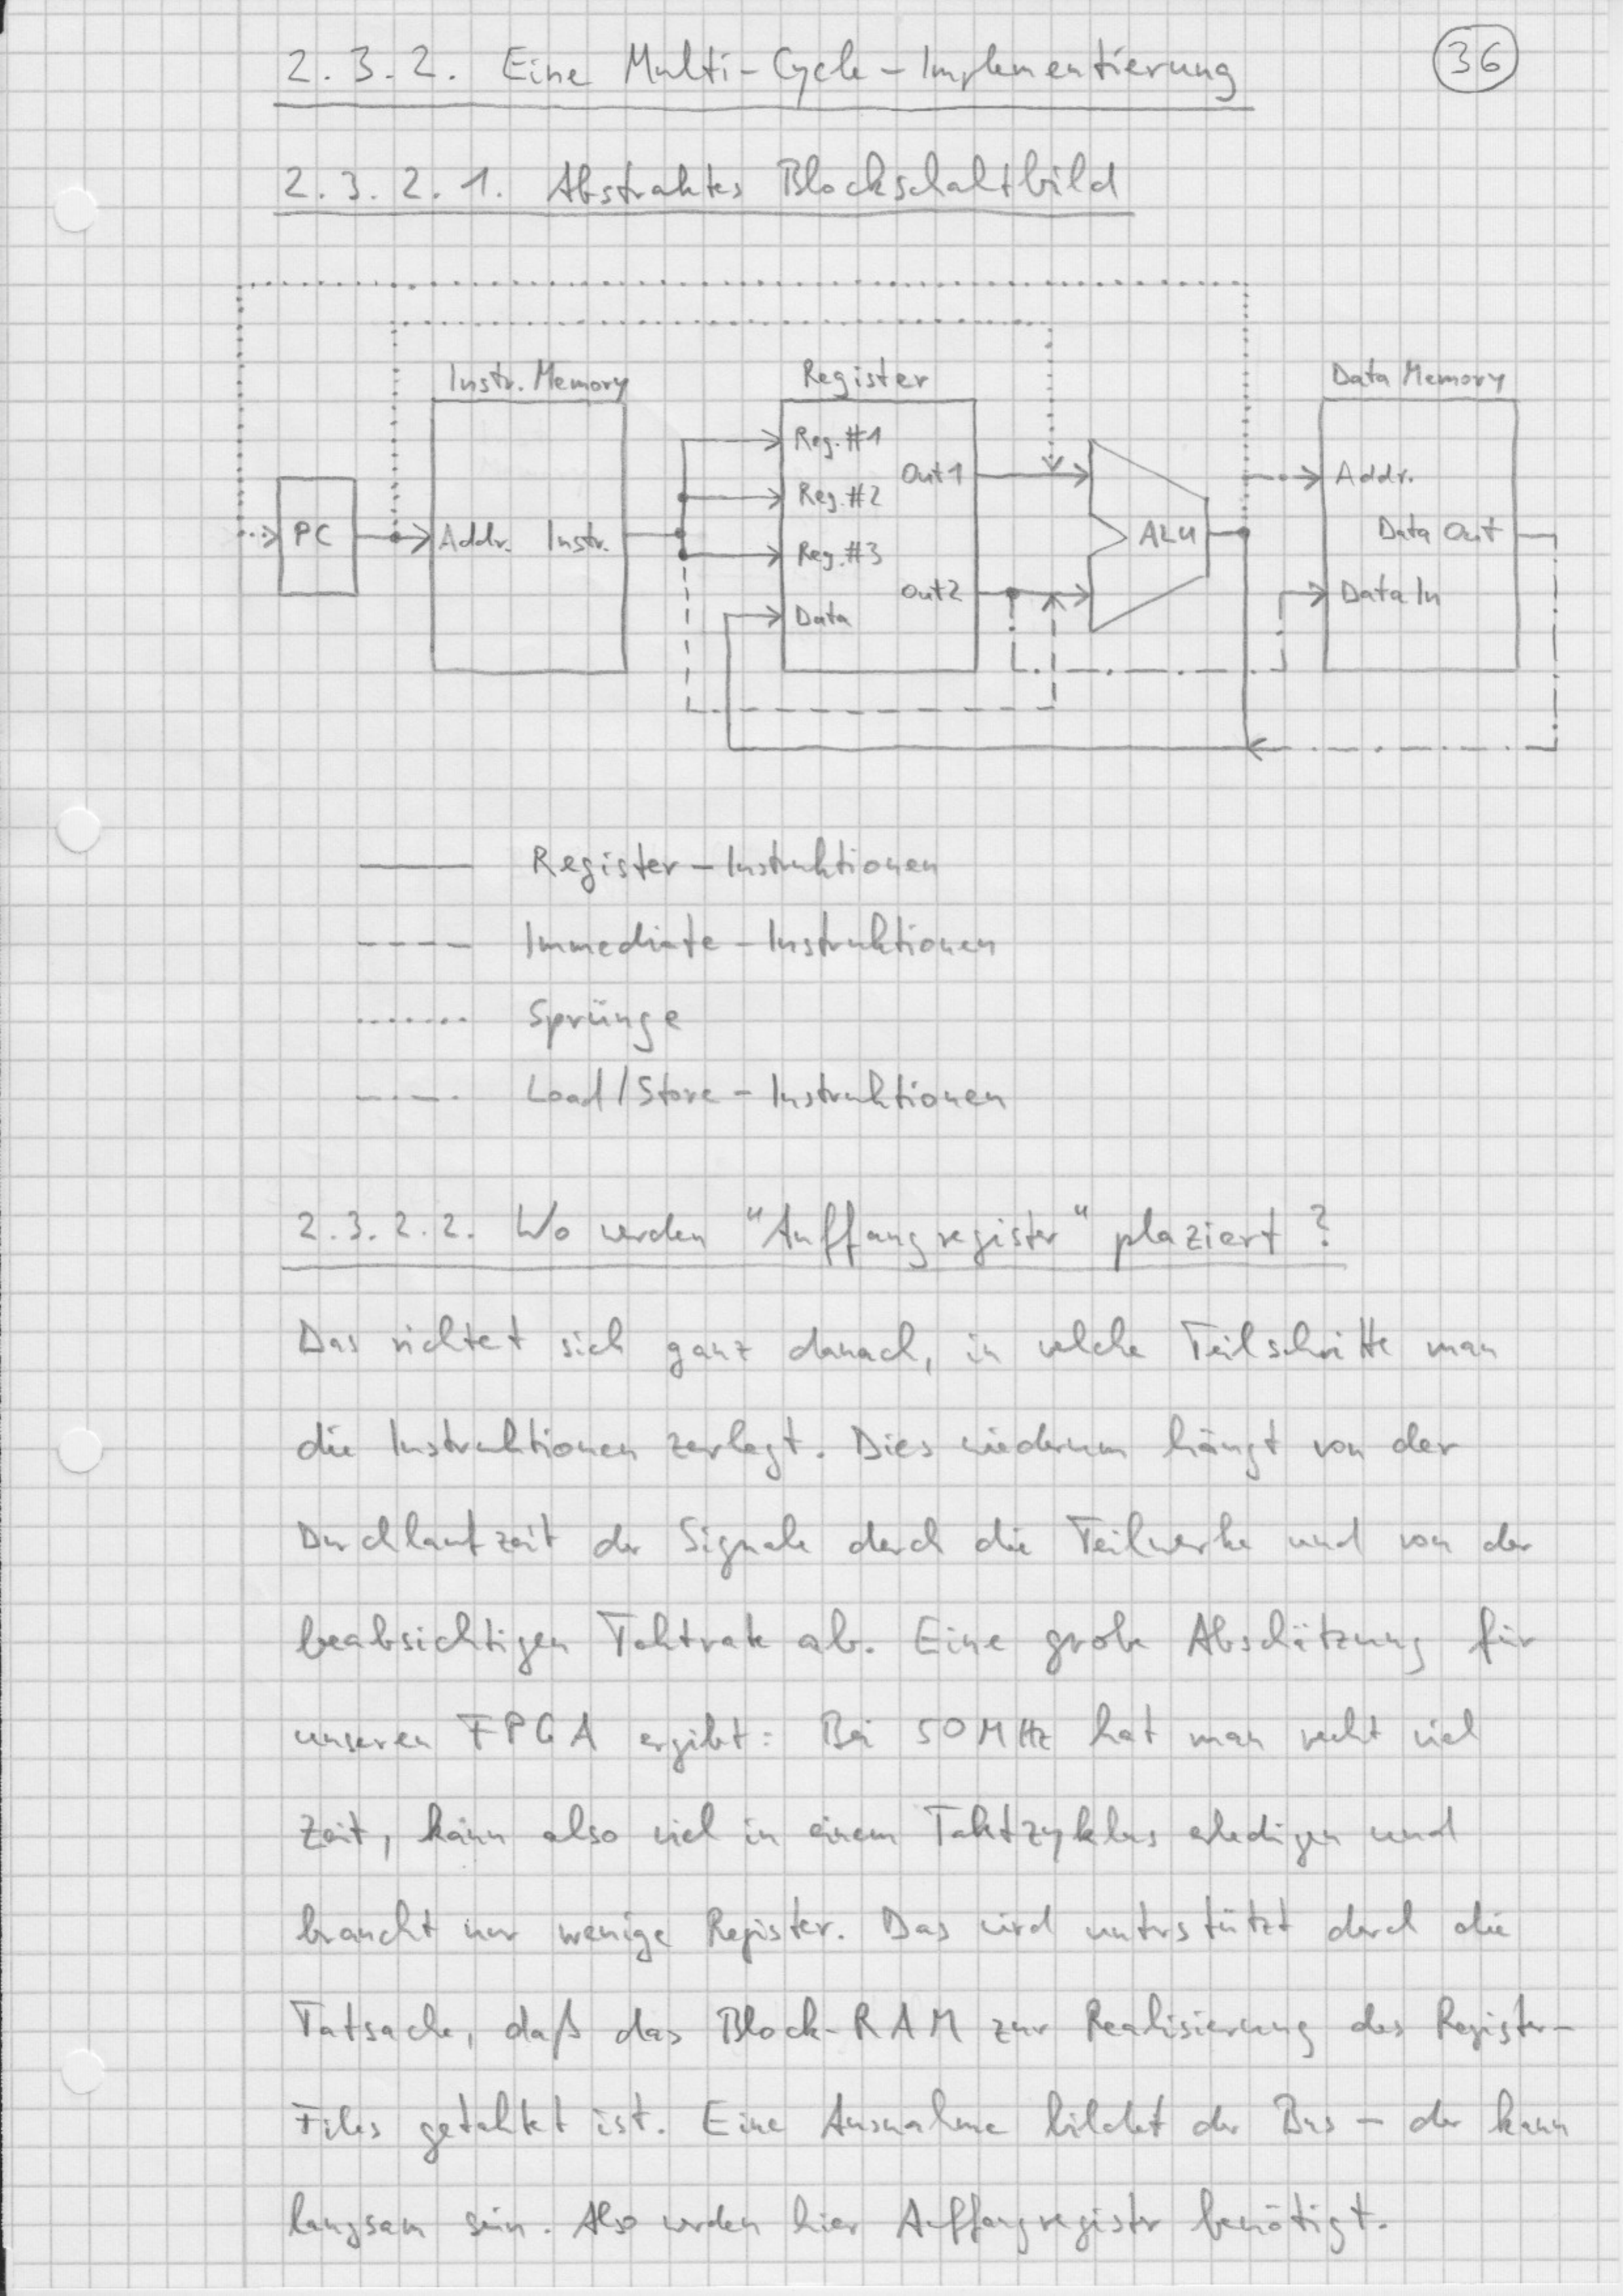 2.3.2. Eine Multi-Cycle-Implementierung
36
2.3.2.1. Abstraktes Blockschaltbild
Instr. Memory
Register
Data Memory
Reg.#1
Out1
Addr.
Reg.#2
PC
Addr. Instr.
ALU
Data Out
Reg.#3
Out2
Data In
Data
Register-Instruktionen
Immediate-Instruktionen
Sprünge
Load/Store-Instruktionen
2.3.2.2. Wo werden "Auffangregister" plaziert?
Das richtet sich ganz danach, in welche Teilschritte man
die Instruktionen zerlegt. Dies wiederum hängt von der
Durchlaufzeit der Signale durch die Teilwerke und von der
beabsichtigen Taktrate ab. Eine grobe Abschätzung für
unseren FPGA ergibt: Bei 50MHz hat man recht viel
Zeit, kann also viel in einem Taktzyklus erledigen und
braucht nur wenige Register. Das wird unterstützt durch die
Tatsache, daß das Block-RAM zur Realisierung des Register-
Files getaktet ist. Eine Ausnahme bildet der Bus - der kann
langsam sein. Also werden hier Auffangregister benötigt.